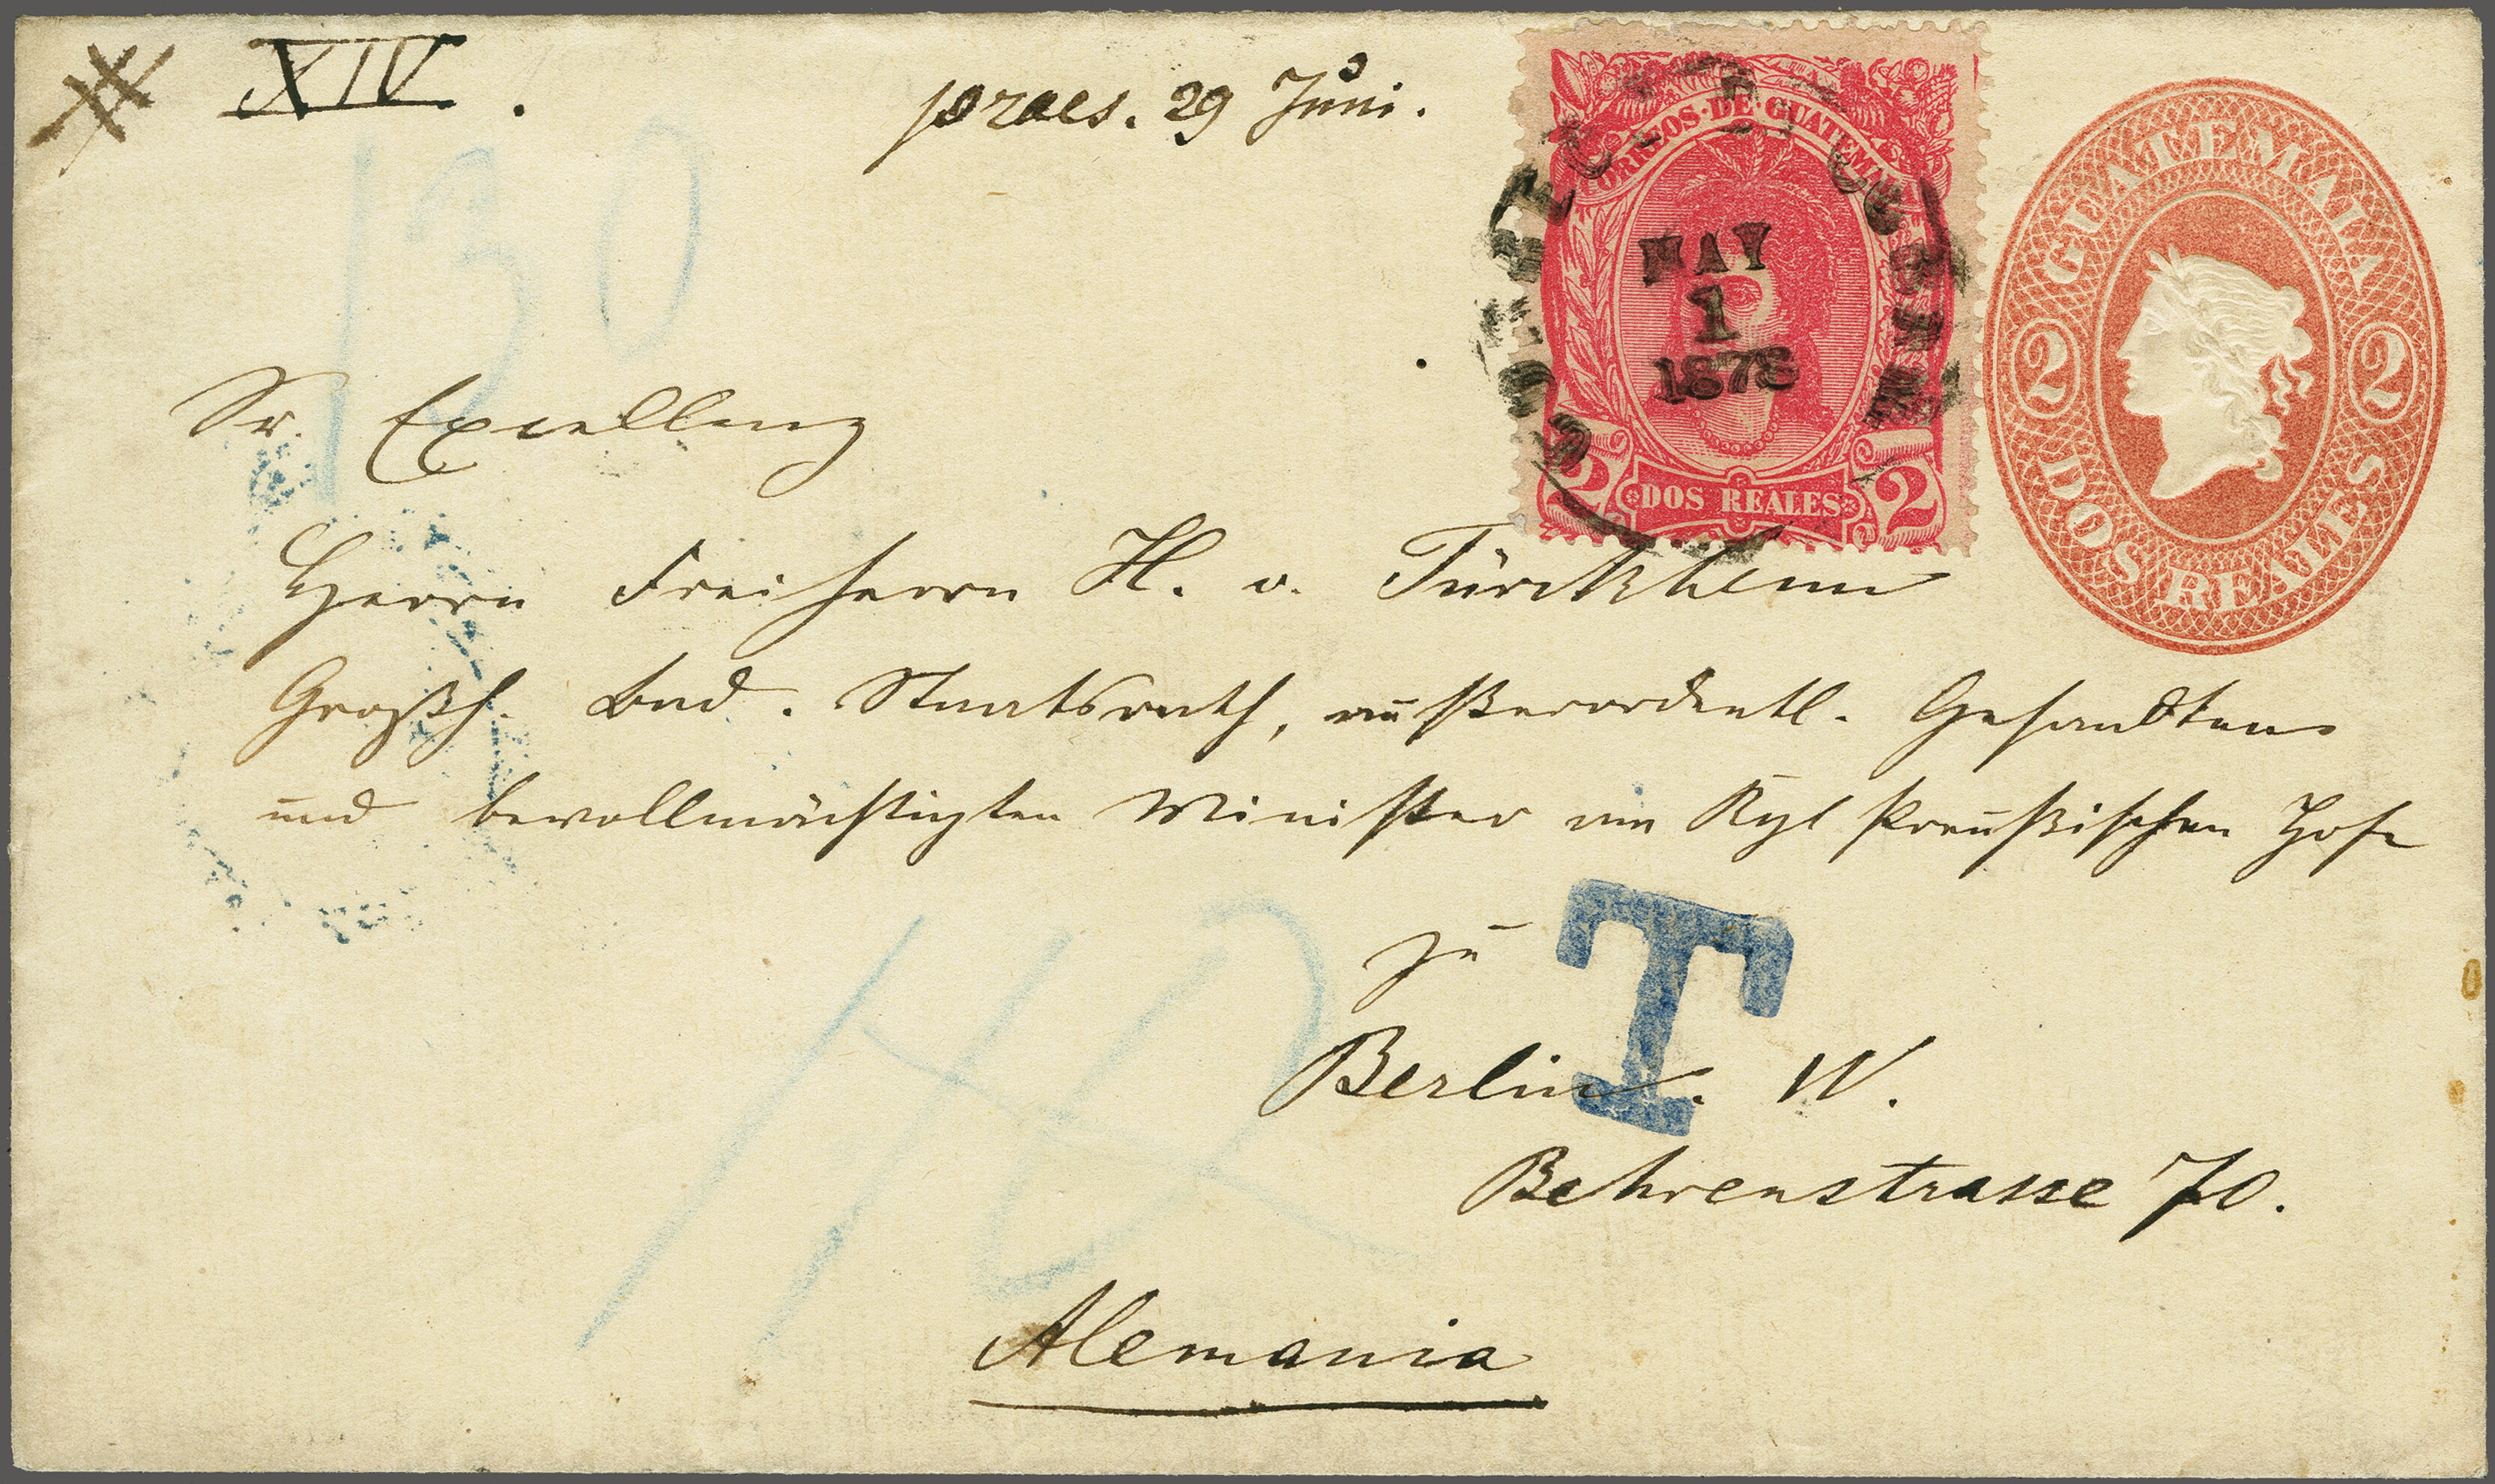 XIV.
praes. 29 Juni.
CORREOS·DE·GUATEMALA
MAY
1
1878
2 DOS REALES 2
GUATEMALA
2 2
DOS REALES
130
Sr. Excellenz
Herrn Freiherrn H. v. Türckheim
Großh. Bad. Staatsrath, außerordentl. Gesandten
und bevollmächtigten Minister am Kgl Preußischen Hofe
zu
T
Berlin. W.
Behrenstrasse 70.
Alemania